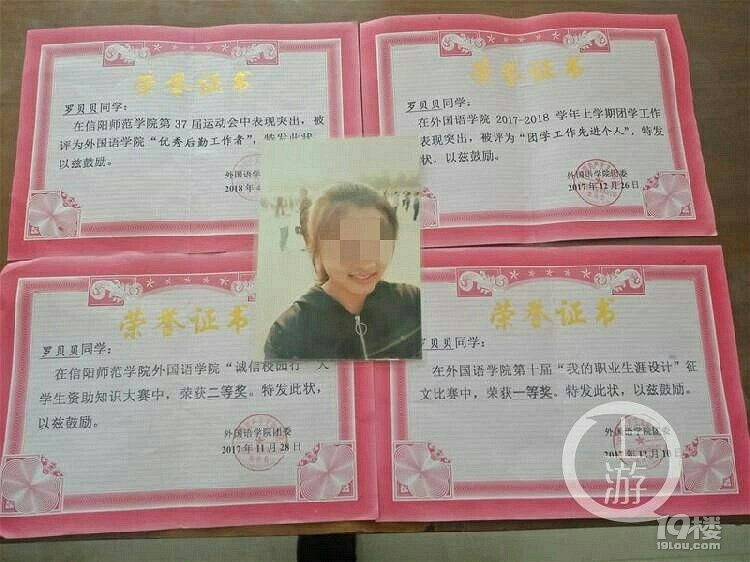 荣誉证书
罗贝贝同学：
在信阳师范学院第 37 届运动会中表现突出，被
评为外国语学院“优秀后勤工作者”，特发此状，
以兹鼓励。
外国语学院
2018 年
荣誉证书
罗贝贝同学：
在外国语学院 2017-2018 学年上学期团学工作
表现突出，被评为“团学工作先进个人”，特发
状，以兹鼓励。
外国语学院团委
2017 年 12 月 26 日
荣誉证书
罗贝贝同学：
在信阳师范学院外国语学院“诚信校园行”大
学生资助知识大赛中，荣获二等奖。特发此状，
以兹鼓励。
外国语学院团委
2017 年 11 月 28 日
荣誉证书
罗贝贝同学：
在外国语学院第十届“我的职业生涯设计”征
文比赛中，荣获一等奖。特发此状，以兹鼓励。
外国语学院团委
游
19楼
19lou.com